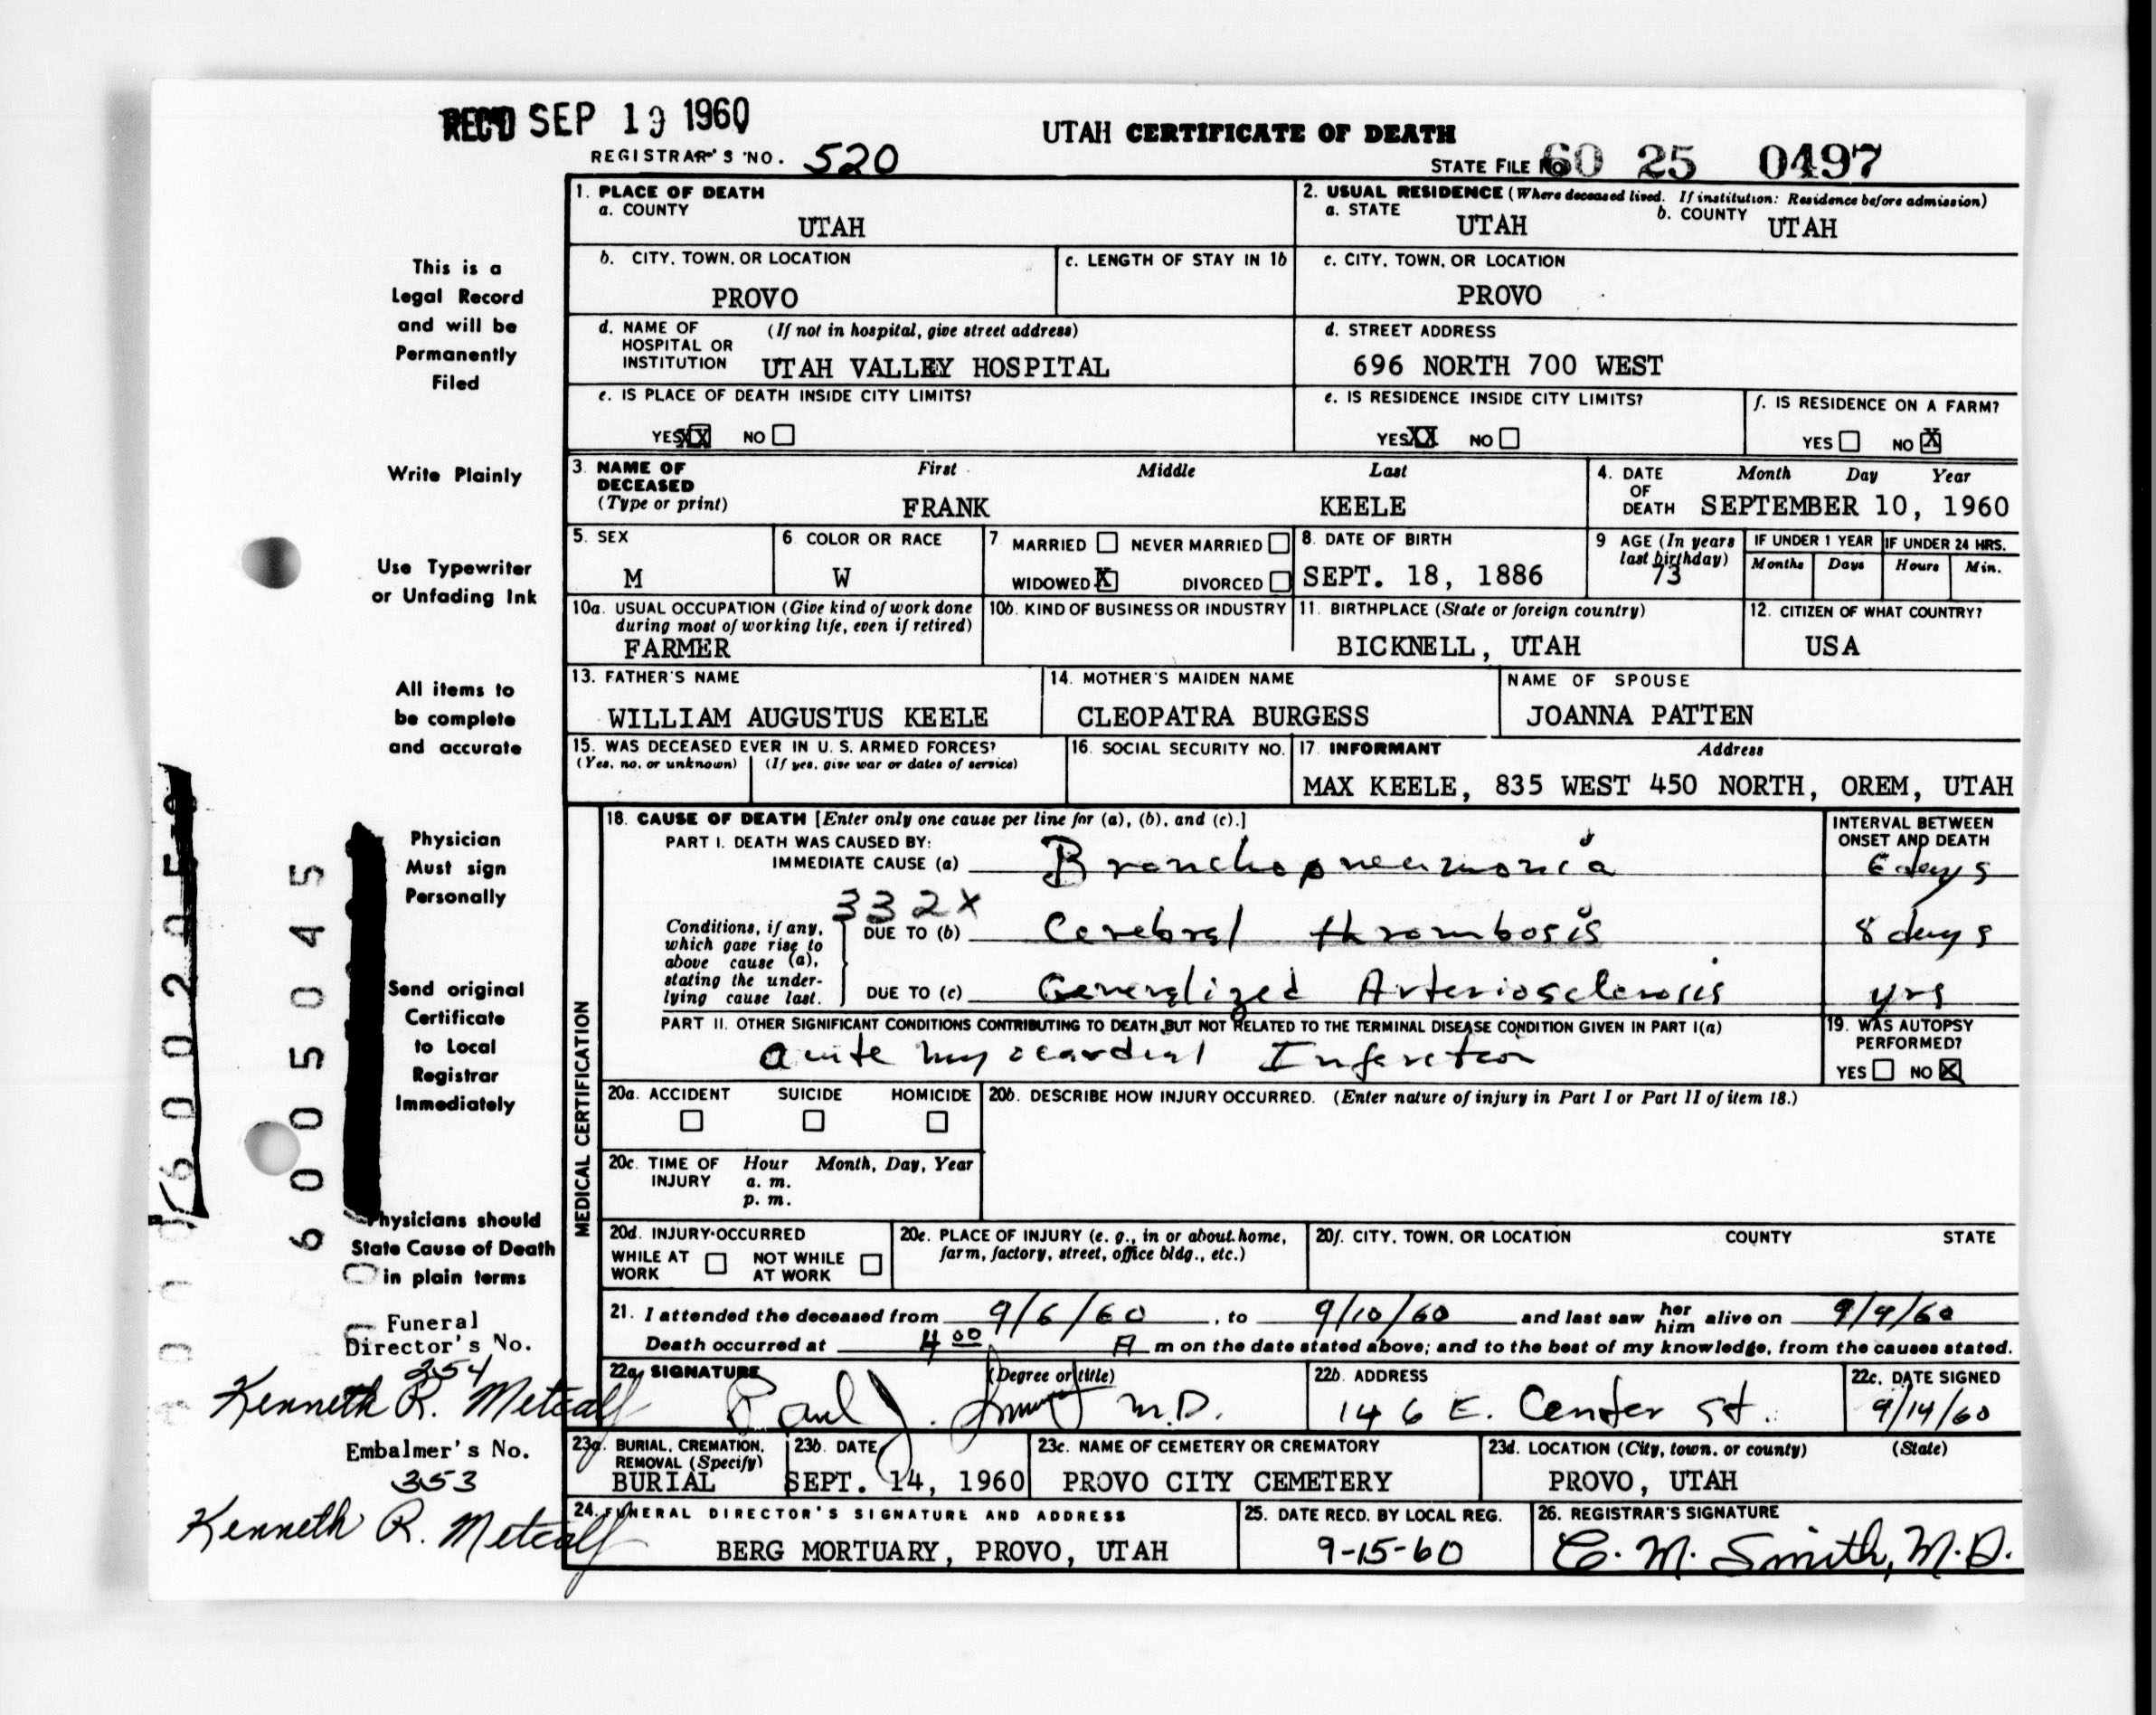 REC'D SEP 19 1960
UTAH CERTIFICATE OF DEATH
REGISTRAR'S NO. 520
STATE FILE NO. 60 25 0497
1. PLACE OF DEATH
a. COUNTY
UTAH
2. USUAL RESIDENCE (Where deceased lived. If institution: Residence before admission)
a. STATE UTAH b. COUNTY UTAH
b. CITY, TOWN, OR LOCATION
PROVO
c. LENGTH OF STAY IN 1b
c. CITY, TOWN, OR LOCATION
PROVO
d. NAME OF HOSPITAL OR INSTITUTION (If not in hospital, give street address)
UTAH VALLEY HOSPITAL
d. STREET ADDRESS
696 NORTH 700 WEST
e. IS PLACE OF DEATH INSIDE CITY LIMITS?
YES XX NO
e. IS RESIDENCE INSIDE CITY LIMITS?
YES XX NO
f. IS RESIDENCE ON A FARM?
YES NO X
3. NAME OF DECEASED (Type or print)
First Middle Last
FRANK KEELE
4. DATE OF DEATH Month Day Year
SEPTEMBER 10, 1960
5. SEX
M
6 COLOR OR RACE
W
7 MARRIED NEVER MARRIED
WIDOWED X DIVORCED
8. DATE OF BIRTH
SEPT. 18, 1886
9 AGE (In years last birthday)
73
IF UNDER 1 YEAR
Months Days
IF UNDER 24 HRS.
Hours Min.
10a. USUAL OCCUPATION (Give kind of work done during most of working life, even if retired)
FARMER
10b. KIND OF BUSINESS OR INDUSTRY
11. BIRTHPLACE (State or foreign country)
BICKNELL, UTAH
12. CITIZEN OF WHAT COUNTRY?
USA
13. FATHER'S NAME
WILLIAM AUGUSTUS KEELE
14. MOTHER'S MAIDEN NAME
CLEOPATRA BURGESS
NAME OF SPOUSE
JOANNA PATTEN
15. WAS DECEASED EVER IN U. S. ARMED FORCES?
(Yes, no, or unknown) (If yes, give war or dates of service)
16. SOCIAL SECURITY NO.
17. INFORMANT Address
MAX KEELE, 835 WEST 450 NORTH, OREM, UTAH
MEDICAL CERTIFICATION
18. CAUSE OF DEATH [Enter only one cause per line for (a), (b), and (c).]
INTERVAL BETWEEN ONSET AND DEATH
PART I. DEATH WAS CAUSED BY:
IMMEDIATE CAUSE (a) Bronchopneumonia 6 days
332X
Conditions, if any, which gave rise to above cause (a), stating the underlying cause last.
DUE TO (b) Cerebral thrombosis 8 days
DUE TO (c) Generalized Arteriosclerosis yrs
PART II. OTHER SIGNIFICANT CONDITIONS CONTRIBUTING TO DEATH BUT NOT RELATED TO THE TERMINAL DISEASE CONDITION GIVEN IN PART I(a)
acute myocardial Infarction
19. WAS AUTOPSY PERFORMED?
YES NO X
20a. ACCIDENT SUICIDE HOMICIDE
20b. DESCRIBE HOW INJURY OCCURRED. (Enter nature of injury in Part I or Part II of item 18.)
20c. TIME OF INJURY Hour Month, Day, Year
a. m.
p. m.
20d. INJURY OCCURRED
WHILE AT WORK NOT WHILE AT WORK
20e. PLACE OF INJURY (e. g., in or about home, farm, factory, street, office bldg., etc.)
20f. CITY, TOWN, OR LOCATION COUNTY STATE
21. I attended the deceased from 9/6/60, to 9/10/60 and last saw her him alive on 9/9/60
Death occurred at 4 00 A m on the date stated above; and to the best of my knowledge, from the causes stated.
22a. SIGNATURE (Degree or title)
Paul J. M.D.
22b. ADDRESS
146 E. Center St.
22c. DATE SIGNED
9/14/60
23a. BURIAL, CREMATION, REMOVAL (Specify)
BURIAL
23b. DATE
SEPT. 14, 1960
23c. NAME OF CEMETERY OR CREMATORY
PROVO CITY CEMETERY
23d. LOCATION (City, town, or county) (State)
PROVO, UTAH
24. FUNERAL DIRECTOR'S SIGNATURE AND ADDRESS
BERG MORTUARY, PROVO, UTAH
25. DATE RECD. BY LOCAL REG.
9-15-60
26. REGISTRAR'S SIGNATURE
C. M. Smith, M.D.
This is a
Legal Record
and will be
Permanently
Filed
Write Plainly
Use Typewriter
or Unfading Ink
All items to
be complete
and accurate
Physician
Must sign
Personally
Send original
Certificate
to Local
Registrar
Immediately
Physicians should
State Cause of Death
in plain terms
Funeral
Director's No.
354
Kenneth R. Metcalf
Embalmer's No.
353
Kenneth R. Metcalf
6005045